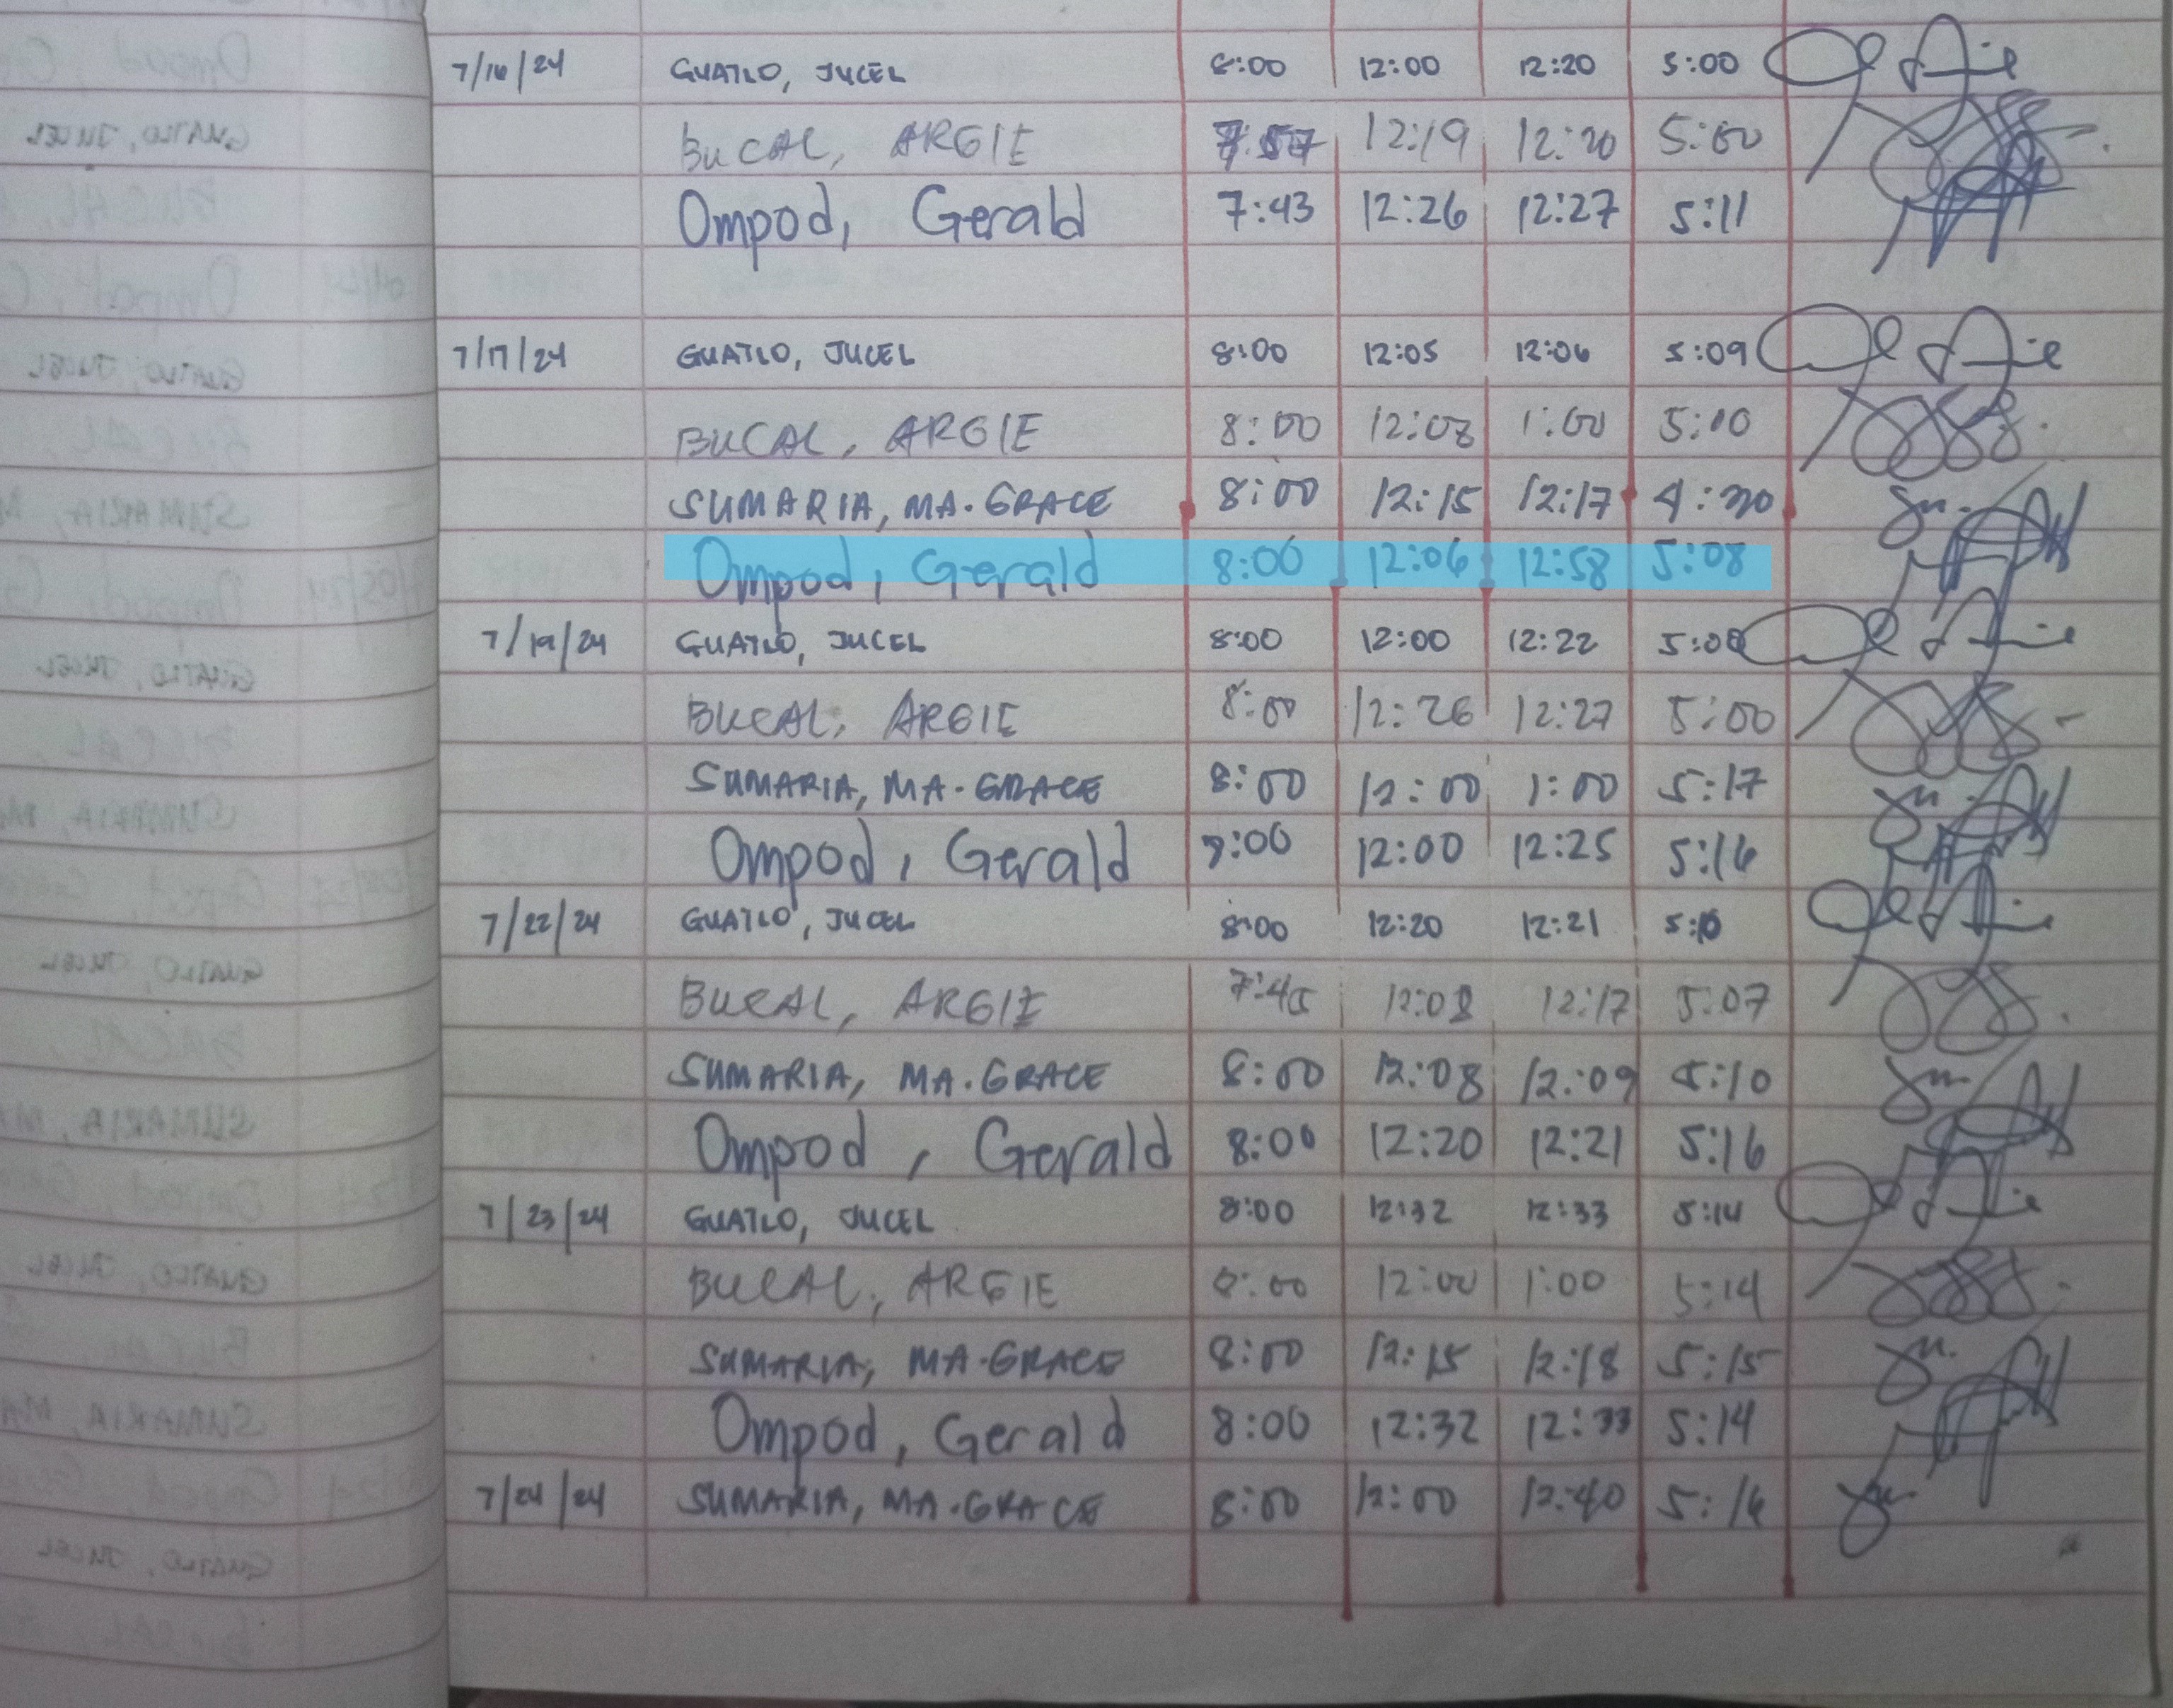 7/16/24 GUATLO, JUCEL 8:00 12:00 12:20 5:00
BUCAL, ARGIE 7:57 12:19 12:20 5:00
Ompod, Gerald 7:43 12:26 12:27 5:11
7/17/24 GUATLO, JUCEL 8:00 12:05 12:06 5:09
BUCAL, ARGIE 8:00 12:08 1:00 5:10
SUMARIA, MA. GRACE 8:00 12:15 12:17 4:30
Ompod, Gerald 8:00 12:06 12:58 5:08
7/19/24 GUATLO, JUCEL 8:00 12:00 12:22 5:00
BUCAL, ARGIE 8:00 12:26 12:27 5:00
SUMARIA, MA. GRACE 8:00 12:00 1:00 5:17
Ompod, Gerald 12:00 12:25 5:16
7/22/24 GUATLO, JUCEL 8:00 12:20 12:21
BUCAL, ARGIE 7:45 12:08 12:17 5:07
SUMARIA, MA. GRACE 8:00 12:08 12:09 5:10
Ompod, Gerald 8:00 12:20 12:21 5:16
7/23/24 GUATLO, JUCEL 8:00 12:32 12:33 5:14
BUCAL, ARGIE 8:00 12:00 1:00 5:14
SUMARIA, MA. GRACE 8:00 12:15 12:18 5:15
Ompod, Gerald 8:00 12:32 12:33 5:14
7/24/24 SUMARIA, MA. GRACE 8:00 12:00 12:40 5:16